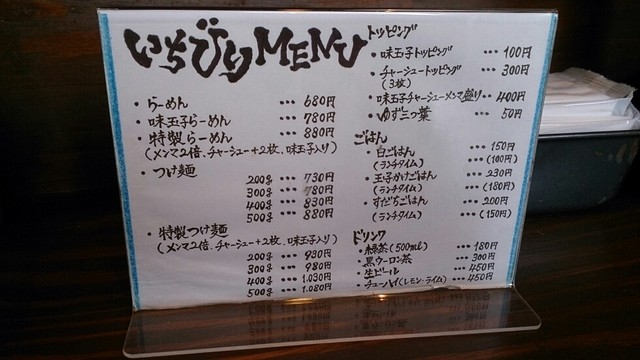 いちびりMENU
・らーめん ・・・ 680円
・味玉子らーめん ・・・ 780円
・特製らーめん ・・・ 880円
(メンマ2倍、チャーシュー+2枚、味玉子入り)
・つけ麺
200g ・・・ 730円
300g ・・・ 780円
400g ・・・ 830円
500g ・・・ 880円
・特製つけ麺
(メンマ2倍、チャーシュー+2枚、味玉子入り)
200g ・・・ 930円
300g ・・・ 980円
400g ・・・ 1,030円
500g ・・・ 1,080円
トッピング
・味玉子トッピング ・・・ 100円
・チャーシュートッピング ・・・ 300円
(3枚)
・味玉子チャーシューメンマ盛り ・・・ 400円
・ゆず三つ葉 50円
ごはん
・白ごはん ・・・ 150円
(ランチタイム) ・・・ (100円)
・玉子かけごはん ・・・ 230円
(ランチタイム) ・・・ (180円)
・すだちごはん ・・・ 200円
(ランチタイム) ・・・ (150円)
ドリンク
・緑茶(500ml) ・・・ 180円
・黒ウーロン茶 ・・・ 300円
・生ビール ・・・ 450円
・チューハイ(レモン・ライム) ・・・ 450円